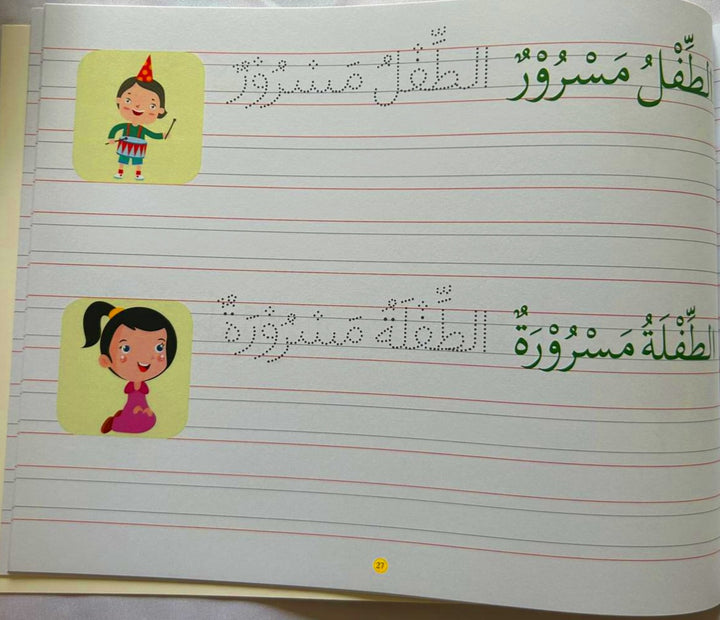 الطِّفْلُ مَسْرُوْرٌ الطِّفْلُ مَسْرُوْرٌ
الطِّفْلَةُ مَسْرُوْرَةٌ الطِّفْلَةُ مَسْرُوْرَةٌ
27